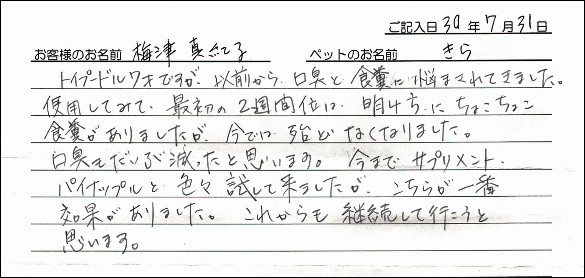 ご記入日 30 年 7 月 31 日
お客様のお名前 梅津 真 ペットのお名前 きら
トイプードル7才ですが、以前から、口臭と食糞に悩まされてきました。
使用してみて、最初の2週間位は、明け方にちょこちょこ
食糞がありましたが、今では殆どなくなりました。
口臭もだいぶ減ったと思います。今までサプリメント、
パイナップルと色々試して来ましたが、こちらが一番
効果がありました。これからも継続して行こうと
思います。